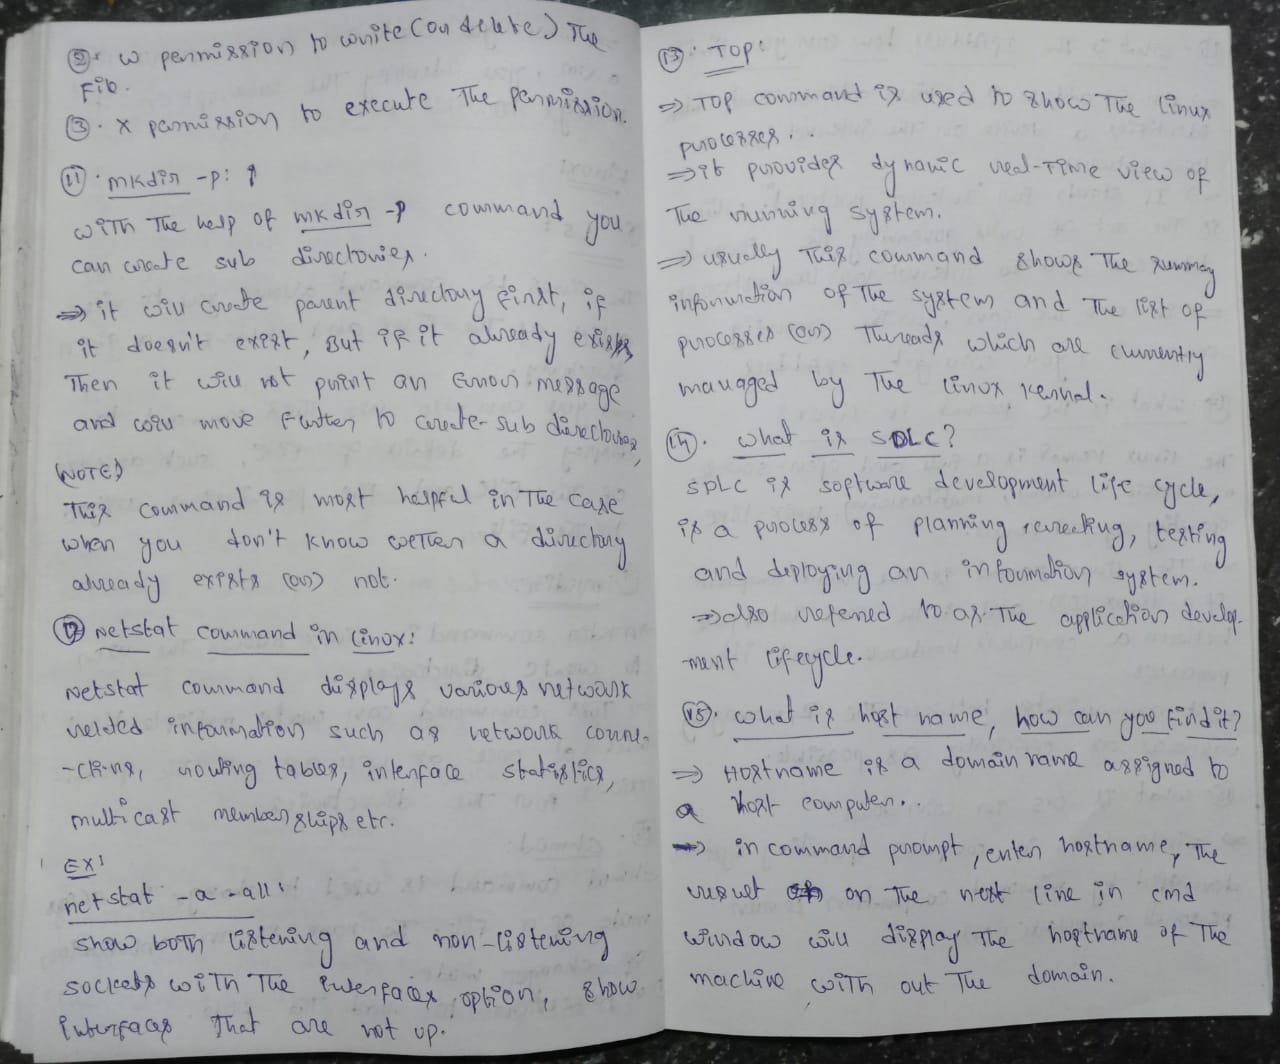 ②. w permission to write (on delete) The
File.
③. x permission to execute The permission.
⑪. mkdir -p:
with The help of mkdir -p command you
can create sub directories.
⇒ it will create parent directory first, if
it doesn't exist, But if it already exists,
Then it will not print an Error message
and will move Further to create sub directories,
NOTE)
This command is most helpful in The case
when you don't know wether a directory
already exists (or) not.
⑫ netstat command in Linux:
netstat command displays various network
related information such as network conne-
-ctions, routing tables, interface statistics,
multicast memberships etc.
EX:
netstat -a -all:
show both listening and non-listening
sockets with The interfaces option, show
interfaces That are not up.
⑬. TOP:
⇒ TOP command is used to show The Linux
processes.
⇒ it provides dynamic real-Time view of
The running system.
⇒ usually This command shows The summay
information of The system and The list of
processes (or) Threads which are currently
managed by The Linux Kernal.
⑭. what is SDLC?
SDLC is software development life cycle,
is a process of planning, creating, testing
and deploying an information system.
⇒ also refered to as The application develop-
ment lifecycle.
⑮. what is host name, how can you find it?
⇒ Hostname is a domain name assigned to
a host computer..
⇒ in command prompt, enter hostname, The
result on The next line in cmd
window will display The hostname of The
machine with out The domain.